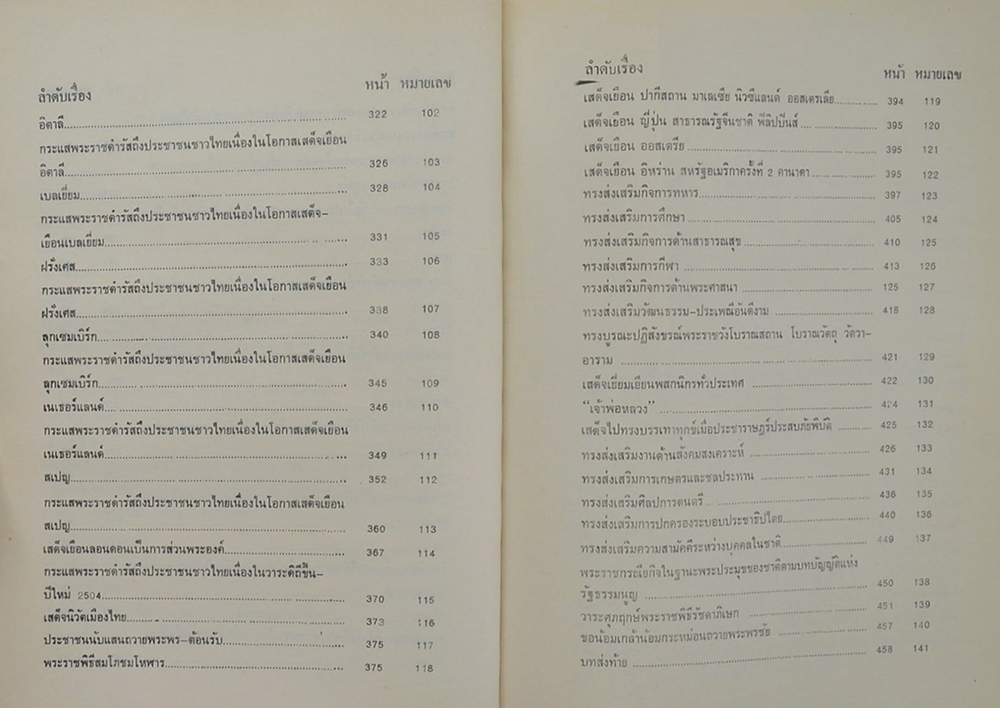 ลำดับเรื่อง หน้า หมายเลข
อิตาลี........ 322 102
กระแสพระราชดำรัสถึงประชาชนชาวไทยเนื่องในโอกาสเสด็จเยือน
อิตาลี........ 326 103
เบลเยี่ยม........ 328 104
กระแสพระราชดำรัสถึงประชาชนชาวไทยเนื่องในโอกาสเสด็จ-
เยือนเบลเยี่ยม........ 331 105
ฝรั่งเศส........ 333 106
กระแสพระราชดำรัสถึงประชาชนชาวไทยเนื่องในโอกาสเสด็จเยือน
ฝรั่งเศส........ 338 107
ลุกเซมเบิร์ก........ 340 108
กระแสพระราชดำรัสถึงประชาชนชาวไทยเนื่องในโอกาสเสด็จเยือน
ลุกเซมเบิร์ก........ 345 109
เนเธอร์แลนด์........ 346 110
กระแสพระราชดำรัสถึงประชาชนชาวไทยเนื่องในโอกาสเสด็จเยือน
เนเธอร์แลนด์........ 349 111
สเปญ........ 352 112
กระแสพระราชดำรัสถึงประชาชนชาวไทยเนื่องในโอกาสเสด็จเยือน
สเปญ........ 360 113
เสด็จเยือนลอนดอนเป็นการส่วนพระองค์........ 367 114
กระแสพระราชดำรัสถึงประชาชนชาวไทยเนื่องในวาระดิถีขึ้น-
ปีใหม่ 2504........ 370 115
เสด็จนิวัตเมืองไทย........ 373 116
ประชาชนนับแสนถวายพระพร-ต้อนรับ........ 375 117
พระราชพิธีสมโภชมโหฬาร........ 375 118
ลำดับเรื่อง หน้า หมายเลข
เสด็จเยือน ปากีสถาน มาเลเซีย นิวซีแลนด์ ออสเตรเลีย........ 394 119
เสด็จเยือน ญี่ปุ่น สาธารณรัฐจีนชาติ ฟิลิปปินส์........ 395 120
เสด็จเยือน ออสเตรีย........ 395 121
เสด็จเยือน อิหร่าน สหรัฐอเมริกาครั้งที่ 2 คานาดา........ 395 122
ทรงส่งเสริมกิจการทหาร........ 397 123
ทรงส่งเสริมการศึกษา........ 405 124
ทรงส่งเสริมกิจการด้านสาธารณสุข........ 410 125
ทรงส่งเสริมการกีฬา........ 413 126
ทรงส่งเสริมกิจการด้านพระศาสนา........ 125 127
ทรงส่งเสริมวัฒนธรรม-ประเพณีอันดีงาม........ 418 128
ทรงบูรณะปฏิสังขรณ์พระราชวังโบราณสถาน โบราณวัตถุ วัดวา-
อาราม........ 421 129
เสด็จเยี่ยมเยียนพสกนิกรทั่วประเทศ........ 422 130
"เจ้าพ่อหลวง"........ 424 131
เสด็จไปทรงบรรเทาทุกข์เมื่อประชาราษฎร์ประสบภัยพิบัติ........ 425 132
ทรงส่งเสริมงานด้านสังคมสงเคราะห์........ 426 133
ทรงส่งเสริมการเกษตรและชลประทาน........ 431 134
ทรงส่งเสริมศิลปการดนตรี........ 436 135
ทรงส่งเสริมการปกครองระบอบประชาธิปไตย........ 440 136
ทรงส่งเสริมความสามัคคีระหว่างบุคคลในชาติ........ 449 137
พระราชกรณียกิจในฐานะพระประมุขของชาติตามบทบัญญัติแห่ง
รัฐธรรมนูญ........ 450 138
วาระศุภฤกษ์พระราชพิธีรัชดาภิเษก........ 451 139
ขอน้อมเกล้าน้อมกระหม่อนถวายพระพรชัย........ 457 140
บทส่งท้าย........ 458 141